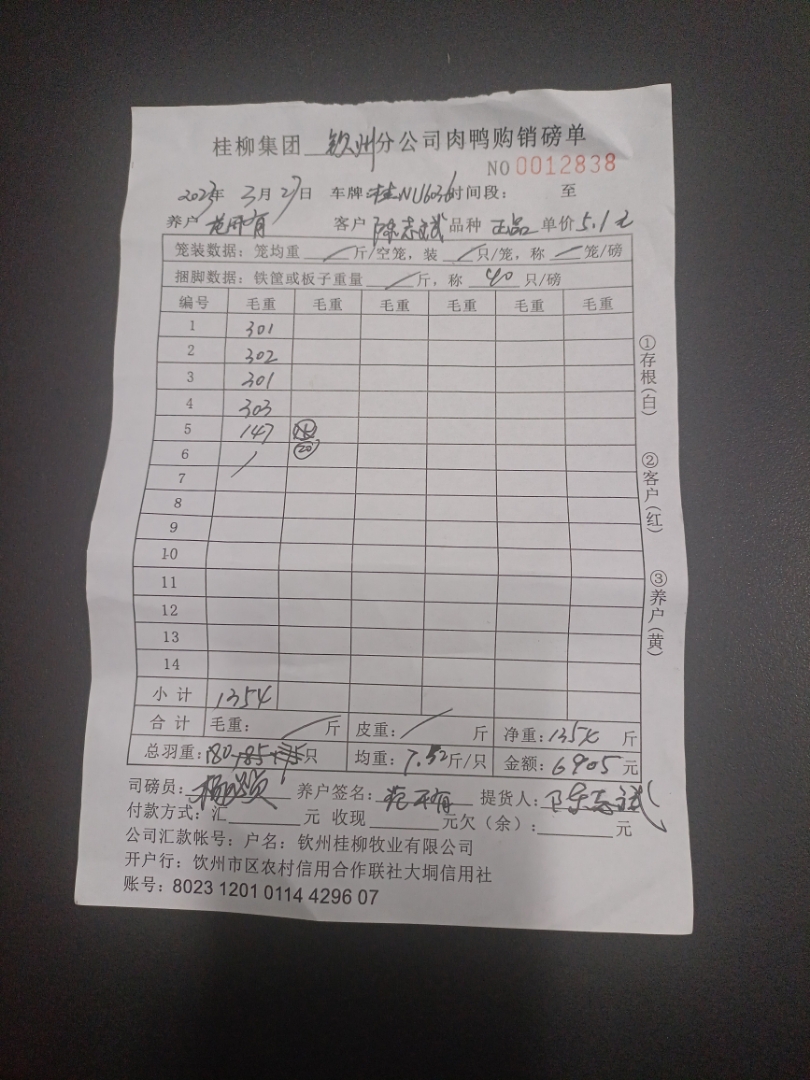 桂柳集团 钦州 分公司肉鸭购销磅单
NO 0012838
2023年 3月27日 车牌:桂NU6036 时间段: 至
养户 客户 陈志斌 品种 正品 单价 5.1元
笼装数据:笼均重 / 斤/空笼,装 / 只/笼,称 / 笼/磅
捆脚数据:铁筐或板子重量 / 斤,称 40 只/磅
编号 毛重 毛重 毛重 毛重 毛重 毛重
1 301
2 302
3 301
4 303
5 147
6 / (20)
7
8
9
10
11
12
13
14
小计 1354
合计 毛重: / 斤 皮重: / 斤 净重:1354 斤
总羽重:180 只 均重:7.52斤/只 金额:6905元
司磅员: 养户签名: 提货人:陈志斌
付款方式:汇 元 收现 元欠(余): 元
公司汇款帐号:户名:钦州桂柳牧业有限公司
开户行:钦州市区农村信用合作联社大垌信用社
账号:8023 1201 0114 4296 07
①存根(白)
②客户(红)
③养户(黄)